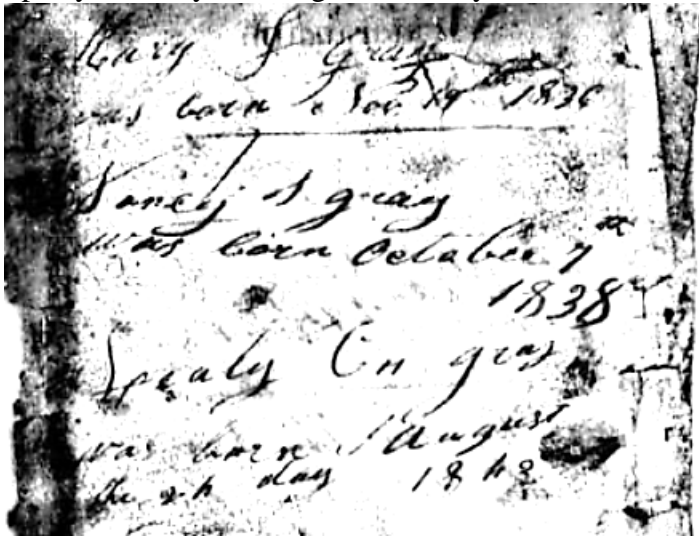 Mary S gray
was born Nov 19th 1836
Nancy S gray
was born October 7th
1838
gray
was born August
the day 1842